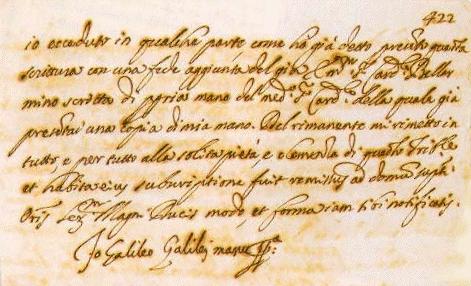 422
io ecceduto in qualche parte come ho già detto presento questa
scrittura con una fede aggiunta del già Em.mo S. Card. Bellar
mino scritta di propria mano del med.o S. Card.e della quale già
presentai una copia di mia mano. Del rimanente mi rimetto in
tutto, e per tutto alla solita pietà e clemenza di questo Trib.le
et habita eius subscriptione fuit remissus ad domum supti
Oris Ser.mi Magni Ducis modo, et forma iam sibi notificatis.
Io Galileo Galilei manu pp.a